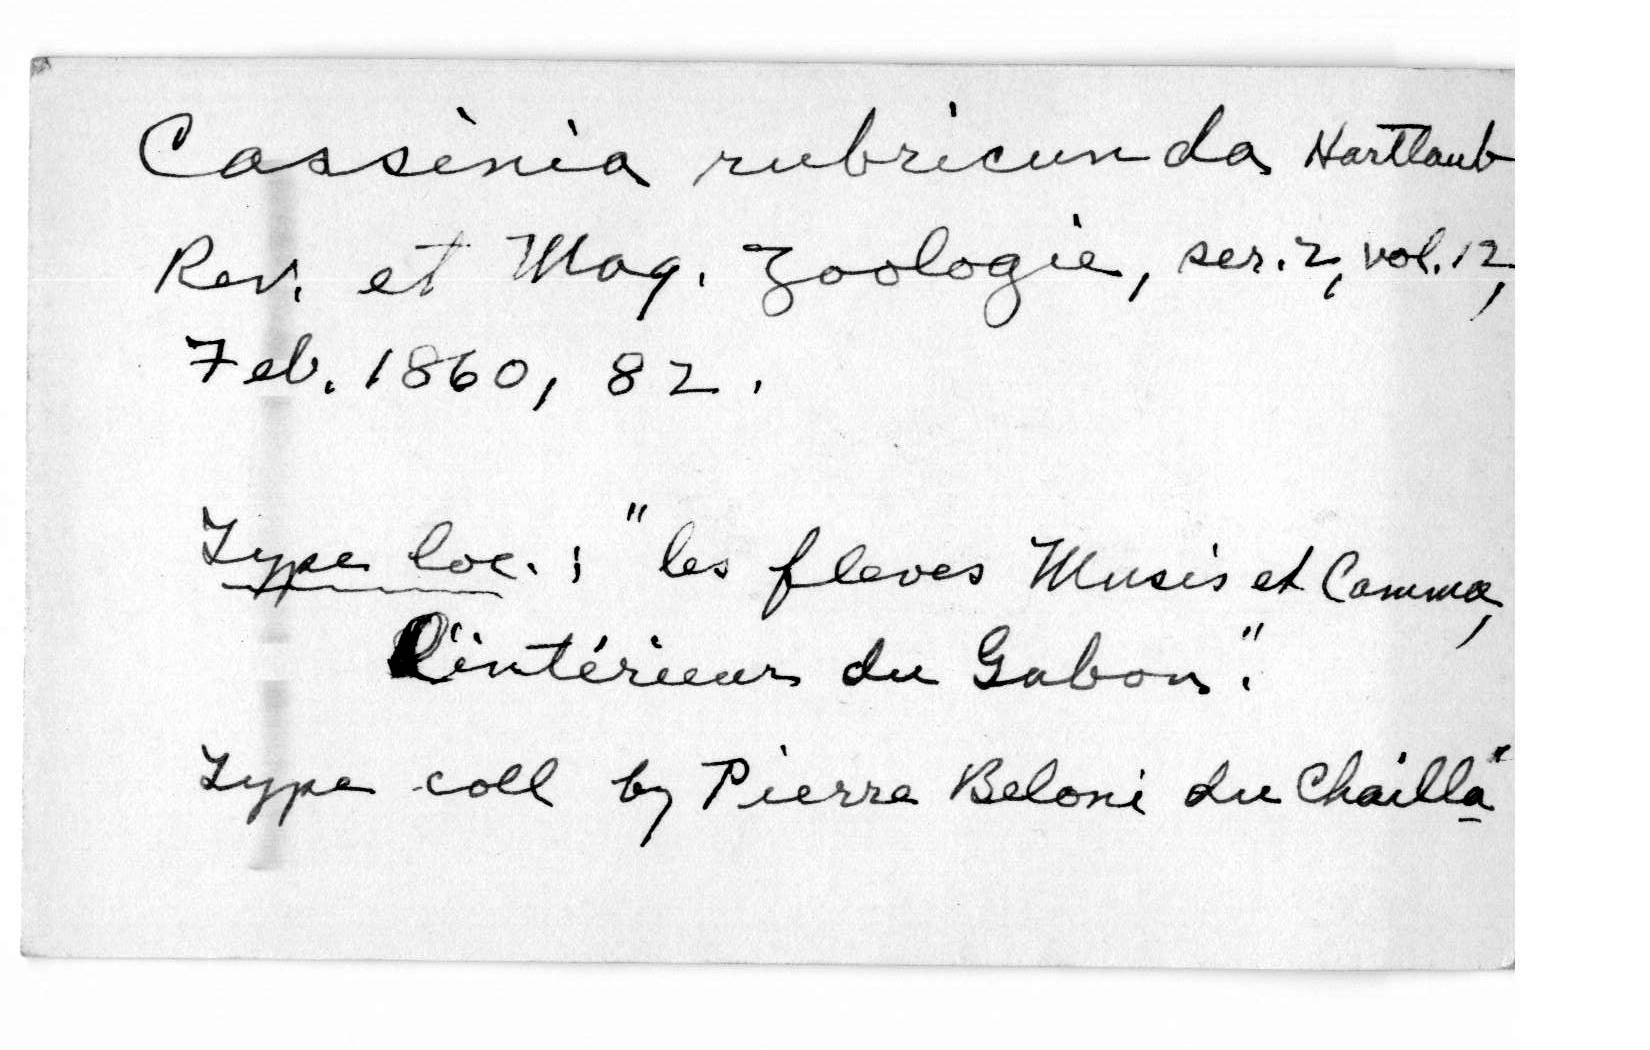 Cassinia rubricunda Hartlaub
Rev. et Mag. Zoologie, ser. 2, vol. 12,
Feb. 1860, 82.
Type loc.: "les fleves Musis et Camma,
l'intérieur du Gabon."
Type coll by Pierre Beloni du Chailla